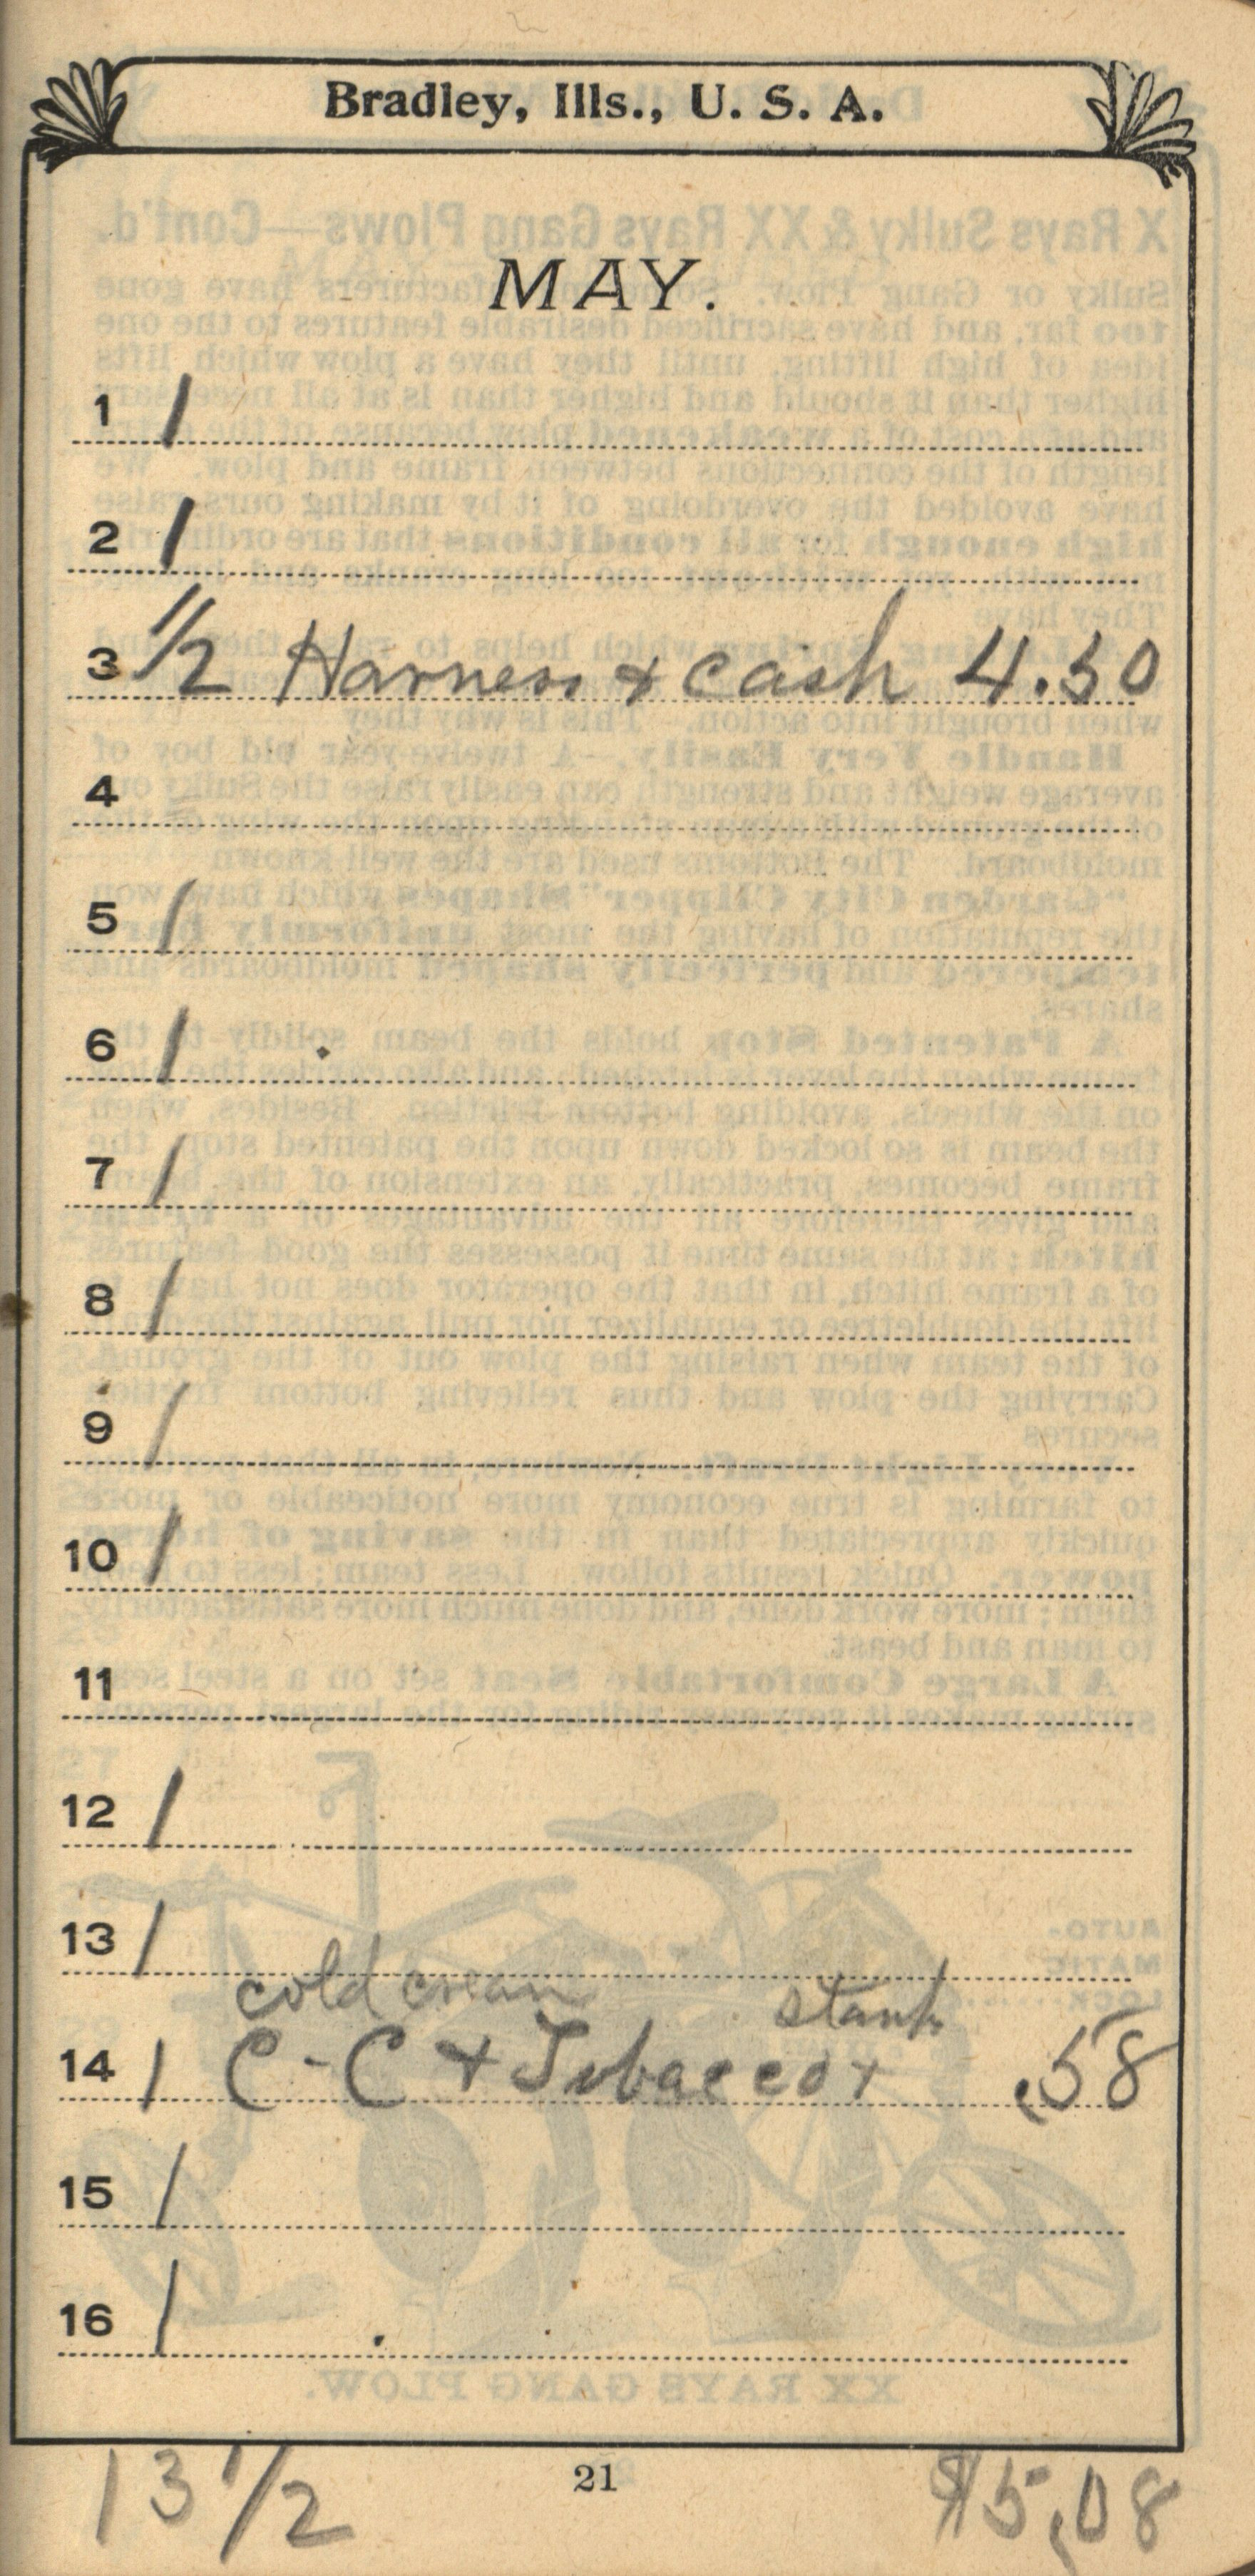 Bradley, Ills., U. S. A.
MAY.
1 /
2 /
3 1/2 Harness + cash 4.50
4
5 /
6 /
7 /
8 /
9 /
10 /
11
12 /
13 /
cold cream stamps
14 / C-C + Tobacco + .58
15 /
16 /
21
13 1/2 $5.08